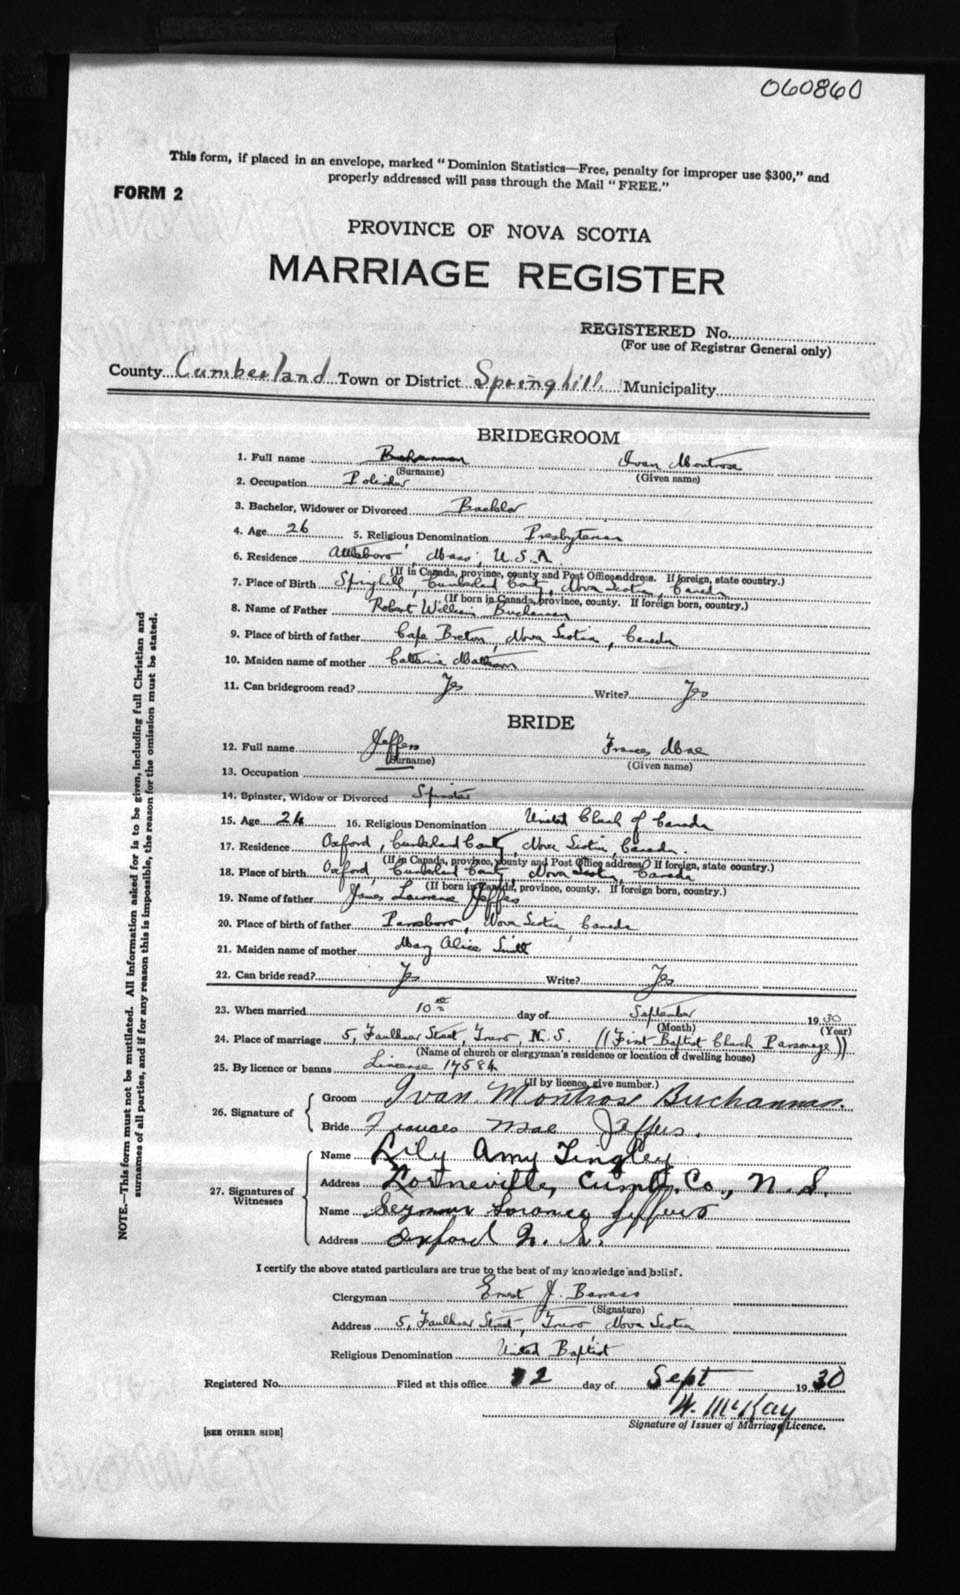 060860
This form, if placed in an envelope, marked "Dominion Statistics—Free, penalty for improper use $300," and
properly addressed will pass through the Mail "FREE."
FORM 2
PROVINCE OF NOVA SCOTIA
MARRIAGE REGISTER
REGISTERED No.
(For use of Registrar General only)
County Cumberland Town or District Springhill Municipality
BRIDEGROOM
1. Full name Buchannan Ivan Montrose
(Surname) (Given name)
2. Occupation
3. Bachelor, Widower or Divorced Bachelor
4. Age 26 5. Religious Denomination Presbyterian
6. Residence Attleboro, Mass, U.S.A
(If in Canada, province, county and Post Office address. If foreign, state country.)
7. Place of Birth Springhill, Cumberland County, Nova Scotia, Canada
(If born in Canada, province, county. If foreign born, country.)
8. Name of Father Robert William Buchannan
9. Place of birth of father Cape Breton, Nova Scotia, Canada
10. Maiden name of mother Catherine
11. Can bridegroom read? Yes Write? Yes
BRIDE
12. Full name Jeffers Frances Mae
(Surname) (Given name)
13. Occupation
14. Spinster, Widow or Divorced Spinster
15. Age 24 16. Religious Denomination United Church of Canada
17. Residence Oxford, Cumberland County, Nova Scotia, Canada.
(If in Canada, province, county and Post Office address. If foreign, state country.)
18. Place of birth Oxford, Cumberland County, Nova Scotia, Canada
(If born in Canada, province, county. If foreign born, country.)
19. Name of father James Lawrence Jeffers
20. Place of birth of father Parrsboro, Nova Scotia, Canada
21. Maiden name of mother Mary Alice Smith
22. Can bride read? Yes Write? Yes
23. When married 10th day of September 1930
(Month) (Year)
24. Place of marriage 5, Faulkner Street, Truro, N.S. ((First Baptist Church Parsonage))
(Name of church or clergyman's residence or location of dwelling house)
25. By licence or banns Lincense 17584
(If by licence, give number.)
26. Signature of
Groom Ivan Montrose Buchannan.
Bride Frances Mae Jeffers.
27. Signatures of Witnesses
Name Lily Amy Tingley
Address Lorneville, Cumb. Co., N.S.
Name Seymour Jeffers
Address Oxford N.S.
I certify the above stated particulars are true to the best of my knowledge and belief.
Clergyman Ernest J. Barrass
(Signature)
Address 5, Faulkner Street, Truro Nova Scotia
Religious Denomination United Baptist
Registered No. Filed at this office 12 day of Sept 1930
W. McKay
Signature of Issuer of Marriage Licence.
[SEE OTHER SIDE]
NOTE.—This form must not be mutilated. All information asked for is to be given, including full Christian and
surnames of all parties, and if for any reason this is impossible, the reason for the omission must be stated.